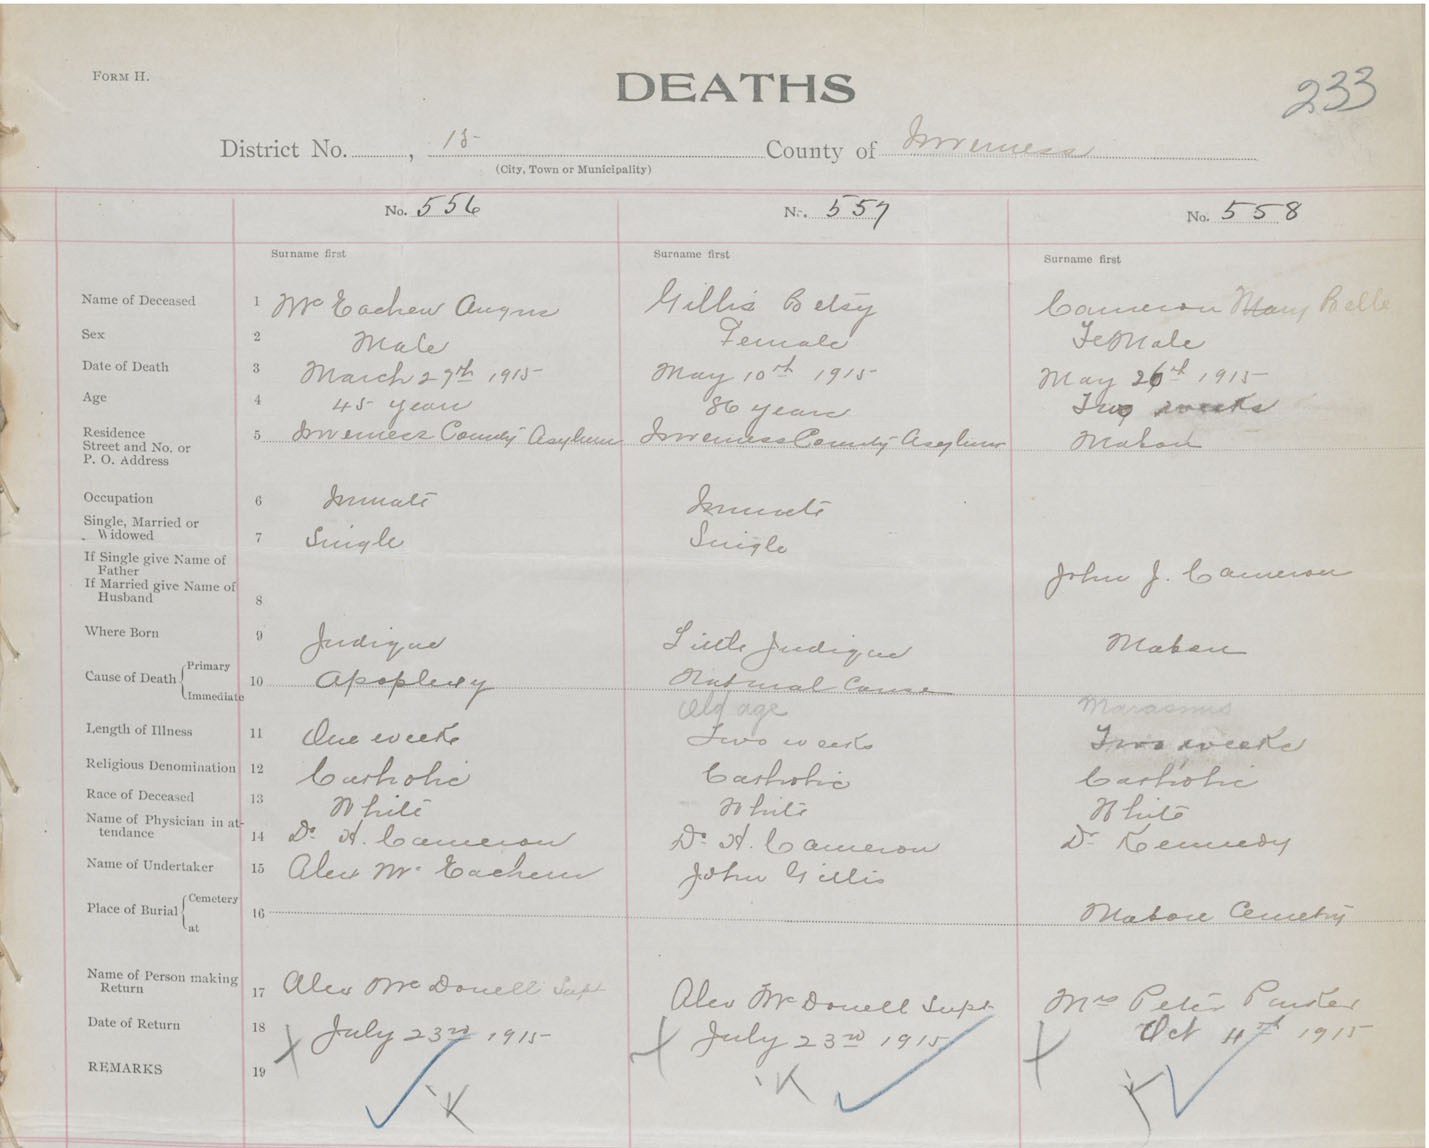 FORM H.
DEATHS
233
District No. , 15 County of Inverness
(City, Town or Municipality)
No. 556 No. 557 No. 558
Surname first Surname first Surname first
Name of Deceased 1 Mc Eachern Angus Gillis Betsy Cameron Mary Belle
Sex 2 Male Female FeMale
Date of Death 3 March 27th 1915 May 10th 1915 May 26th 1915
Age 4 45 years 86 years Two weeks
Residence
Street and No. or 5 Inverness County Asylum Inverness County Asylum Mabou
P. O. Address
Occupation 6 Inmate Inmate
Single, Married or
Widowed 7 Single Single
If Single give Name of
Father John J. Cameron
If Married give Name of
Husband 8
Where Born 9 Judique Little Judique Mabou
Cause of Death Primary 10 Apoplexy Natural Cause
Immediate Old age Marasmus
Length of Illness 11 One weeks Two weeks Two weeks
Religious Denomination 12 Catholic Catholic Catholic
Race of Deceased 13 White White White
Name of Physician in at-
tendance 14 Dr H. Cameron Dr H. Cameron Dr Kennedy
Name of Undertaker 15 Alex Mc Eachern John Gillis
Place of Burial Cemetery 16 Mabou Cemetry
at
Name of Person making
Return 17 Alex Mc Donell Supt Alex Mc Donell Supt Mrs Peter Parker
Date of Return 18 X July 23rd 1915 X July 23rd 1915 X Oct 4th 1915
REMARKS 19 K K K